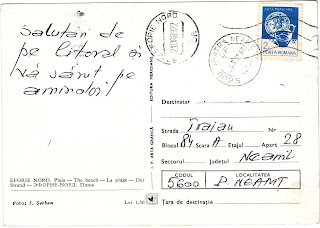 Salutări de
pe litoral și
vă sărut pe
amîndoi!
EFORIE NORD. Plaja — The beach — La plage — Der
Strand — ЭФОРИЕ-НОРД. Пляж
Foto: I. Șerban
Lei 1,50
EFORIE NORD
PIATRA NEAMȚ
POSTA ROMANA
Destinatar
Strada Traian Nr
Blocul 84 Scara A Etajul Apart 28
Sectorul Județul Neamț
CODUL LOCALITATEA
5600 P. NEAMȚ
Țara de destinație